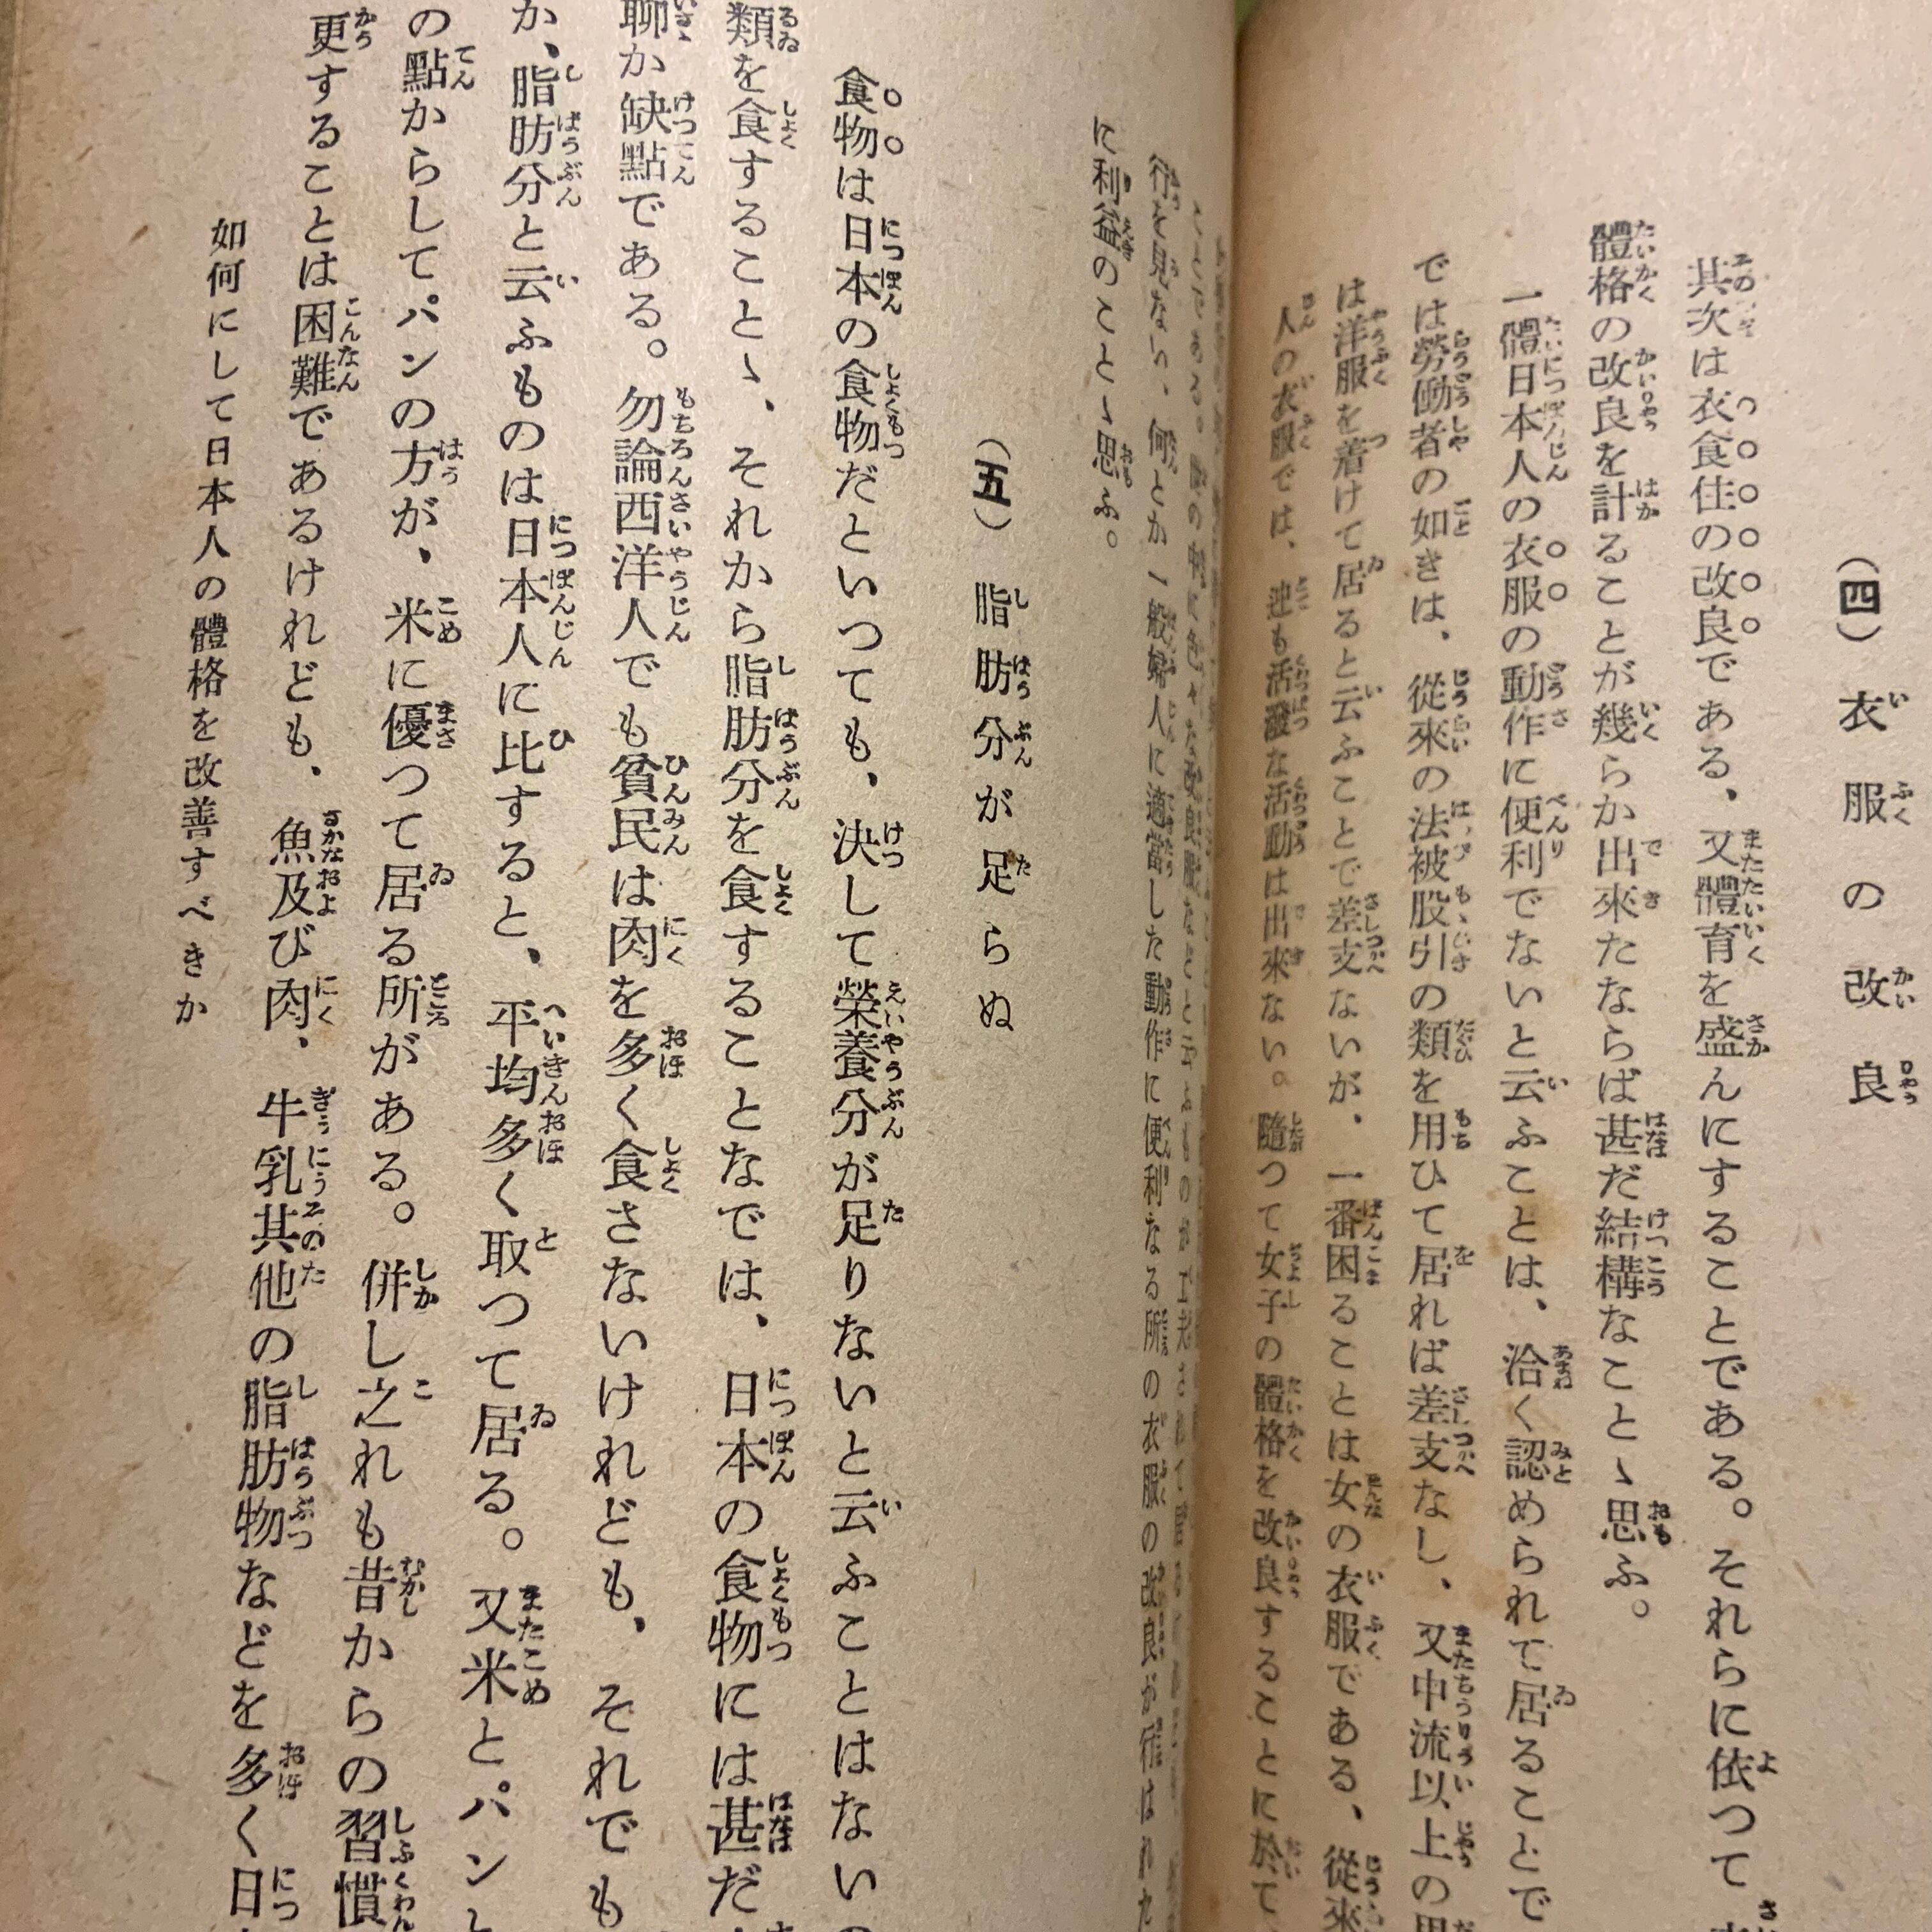 （四）　衣服の改良
其次は衣食住の改良である、又體育を盛んにすることである。それらに依つて
體格の改良を計ることが幾らか出來たならば甚だ結構なことゝ思ふ。
一體日本人の衣服の動作に便利でないと云ふことは、洽く認められて居ることで
では勞働者の如きは、從來の法被股引の類を用ひて居れば差支なし、又中流以上の
は洋服を着けて居ると云ふことで差支ないが、一番困ることは女の衣服である、從來
人の衣服では、迚も活潑な活動は出來ない。隨つて女子の體格を改良することに於て
行を見ない、何とか一般婦人に適當した動作に便利なる所の衣服の改良が行はれた
に利益のことゝ思ふ。
（五）　脂肪分が足らぬ
食物は日本の食物だといつても、決して榮養分が足りないと云ふことはない
類を食することゝ、それから脂肪分を食することなでは、日本の食物には甚だ
聊か缺點である。勿論西洋人でも貧民は肉を多く食さないけれども、それでも
か、脂肪分と云ふものは日本人に比すると、平均多く取つて居る。又米とパン
の點からしてパンの方が、米に優つて居る所がある。併し之れも昔からの習慣
更することは困難であるけれども、魚及び肉、牛乳其他の脂肪物などを多く日
如何にして日本人の體格を改善すべきか